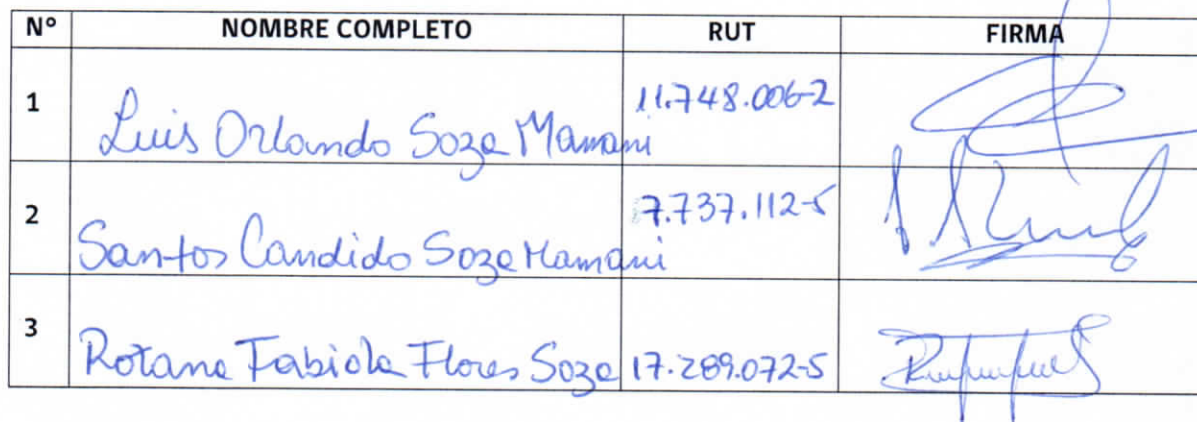 N° NOMBRE COMPLETO RUT FIRMA
1 Luis Orlando Soza Mamani 11.748.006-2
2 Santos Candido Soza Mamani 7.737.112-5
3 Roxana Fabiola Flores Soza 17.289.072-5